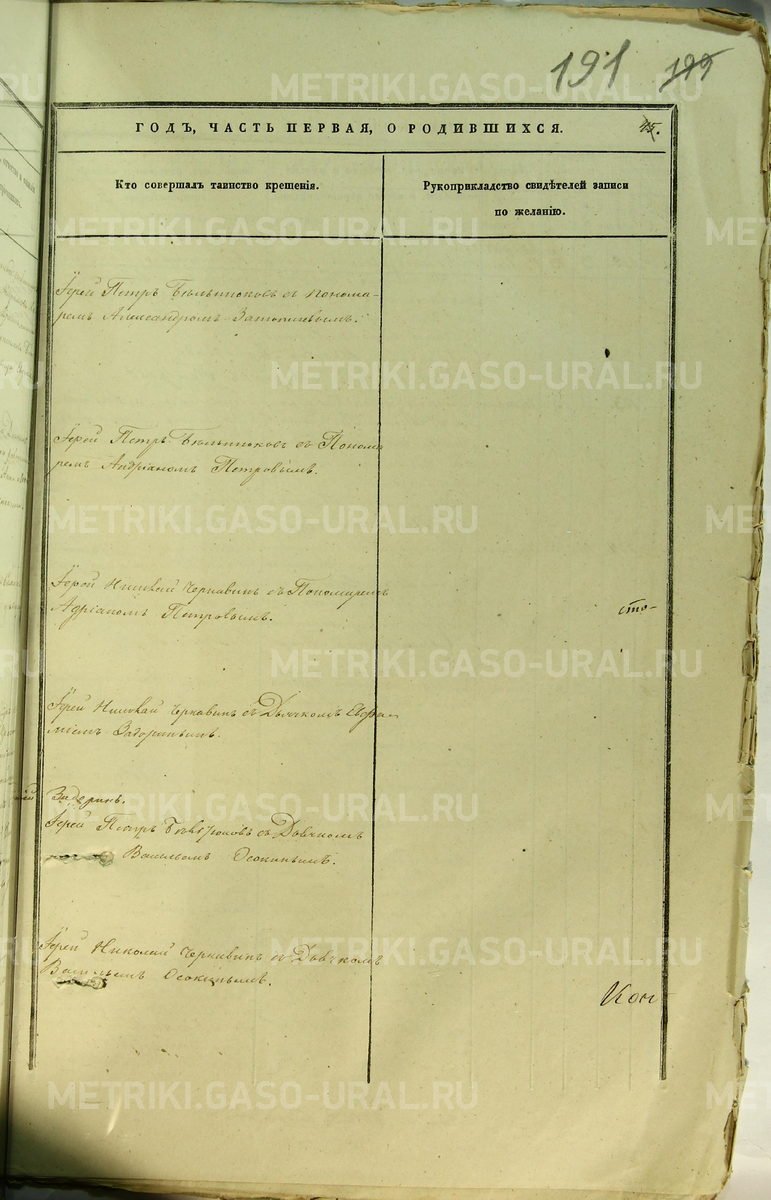 191 199
ГОДЪ, ЧАСТЬ ПЕРВАЯ, О РОДИВШИХСЯ. 45.
Кто совершалъ таинство крещенія.
Рукоприкладство свидѣтелей записи
по желанію.
Іерей Петръ съ Понома-
ремъ Александромъ
Іерей Петръ съ Понома
ремъ Андріаномъ Петровымъ.
Іерей Николай Чернавинъ съ Пономаремъ
Адріаномъ Петровымъ.
сто-
Іерей Николай Чернавинъ съ Дьячкомъ Евфи-
міемъ Задоринымъ.
Задоринъ.
Іерей Петръ съ Дьячкомъ
Васильемъ Осокинымъ.
Іерей Николай Чернавинъ съ Дьячкомъ
Васильемъ Осокинымъ.
Кон
METRIKI.GASO-URAL.RU